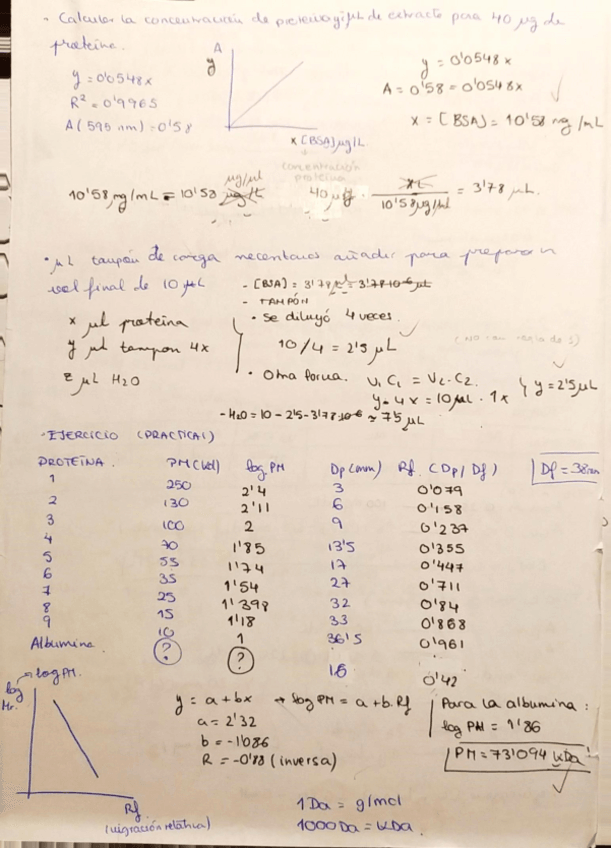 - Calcular la concentración de proteína y μL de extracto para 40 μg de
proteína.
y = 0'0548x
R² = 0'9965
A (595 nm) = 0'58
A
y
x [BSA] μg/L
concentración
proteína
y = 0'0548x
A = 0'58 = 0'0548x
x = [BSA] = 10'58 mg/mL
10'58 mg/mL = 10'58 μg/μL
40 μg · μL / 10'58 μg/μL = 3'78 μL.
• μL tampón de carga necesitamos añadir para preparar un
vol final de 10 μL
x μL proteína
y μL tampon 4x
z μL H2O
- [BSA] = 3'78
- TAMPÓN
• Se diluyó 4 veces.
10/4 = 2'5 μL
• Otra forma. V1 C1 = V2 · C2.
y · 4x = 10 μL · 1x
y = 2'5 μL
- EJERCICIO (PRACTICA 1)
PROTEÍNA. PM (kD) log PM Dp (mm) Rf. (Dp/Df) Df = 38mm
1 250 2'4 3 0'079
2 130 2'11 6 0'158
3 100 2 9 0'237
4 70 1'85 13'5 0'355
5 55 1'74 17 0'447
6 35 1'54 27 0'711
7 25 1'398 32 0'84
8 15 1'18 33 0'868
9 10 1 36'5 0'961
Albumina ? ? 16 0'42
log PM.
log
Mr.
Rf
(migración relativa)
y = a + bx → log PM = a + b·Rf
a = 2'32
b = -1'086
R = -0'98 (inversa)
Para la albumina:
log PM = 1'86
PM = 73'094 kDa
1 Da = g/mol
1000 Da = kDa.